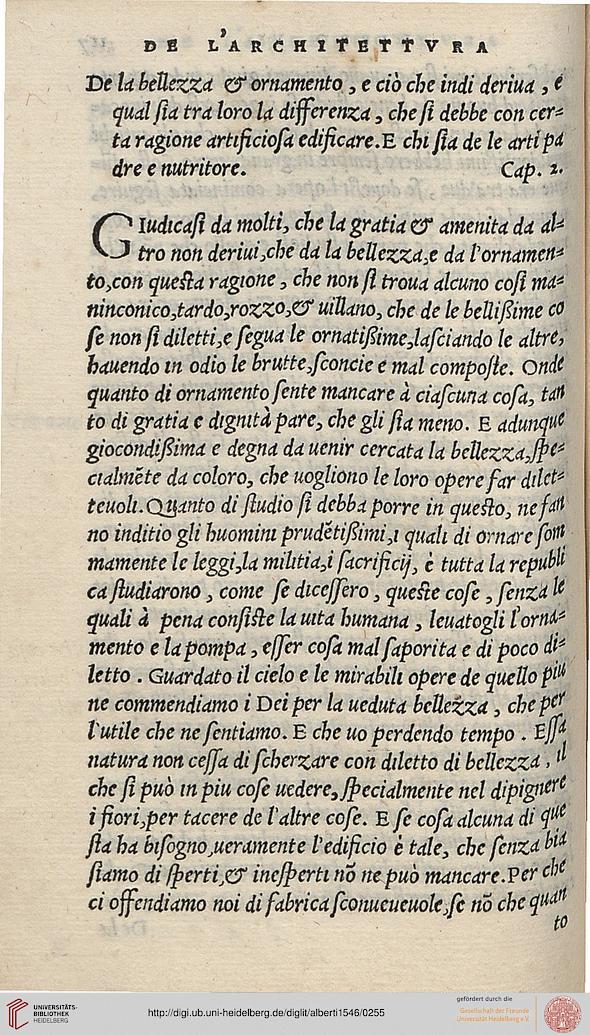 DE L'ARCHITETTVRA
De la bellezza & ornamento, e ciò che indi deriua, e
qual ſia tra loro la differenza, che ſi debbe con cer=
ta ragione artificioſa edificare. E chi ſia de le arti pa
dre e nutritore. Cap. 2.
GIudicaſi da molti, che la gratia & amenita da al=
tro non deriui, che da la bellezza, e da l'ornamen=
to, con queſta ragione, che non ſi troua alcuno coſi ma=
ninconico, tardo, rozzo, & uillano, che de le belliſſime co
ſe non ſi diletti, e ſegua le ornatiſſime, laſciando le altre,
hauendo in odio le brutte, ſconcie e mal compoſte. Onde
quanto di ornamento ſente mancare à ciaſcuna coſa, tan
to di gratia e dignità pare, che gli ſia meno. E adunque
giocondiſſima e degna da uenir cercata la bellezza, ſpe=
cialmẽte da coloro, che uogliono le loro opere far dilet=
teuoli. Quanto di ſtudio ſi debba porre in queſto, ne fan
no inditio gli huomini prudẽtiſſimi, i quali di ornare ſom
mamente le leggi, la militia, i ſacrificij, è tutta la republi
ca ſtudiarono, come ſe diceſſero, queſte coſe, ſenza le
quali à pena conſiſte la uita humana, leuatogli l'orna=
mento e la pompa, eſſer coſa mal ſaporita e di poco di=
letto. Guardato il cielo e le mirabili opere de quello piu
ne commendiamo i Dei per la ueduta bellezza, che per
l'utile che ne ſentiamo. E che uo perdendo tempo. Eſſa
natura non ceſſa di ſcherzare con diletto di bellezza, il
che ſi può in piu coſe uedere, ſpecialmente nel dipignere
i fiori, per tacere de l'altre coſe. E ſe coſa alcuna di que
ſta ha biſogno, ueramente l'edificio è tale, che ſenza bia
ſiamo di ſperti, & ineſperti nõ ne può mancare. Per che
ci offendiamo noi di fabrica ſconueueuole, ſe nõ che quan
to
UNIVERSITÄTS-
BIBLIOTHEK
HEIDELBERG
http://digi.ub.uni-heidelberg.de/diglit/alberti1546/0255
gefördert durch die
Gesellschaft der Freunde
Universität Heidelberg e.V.